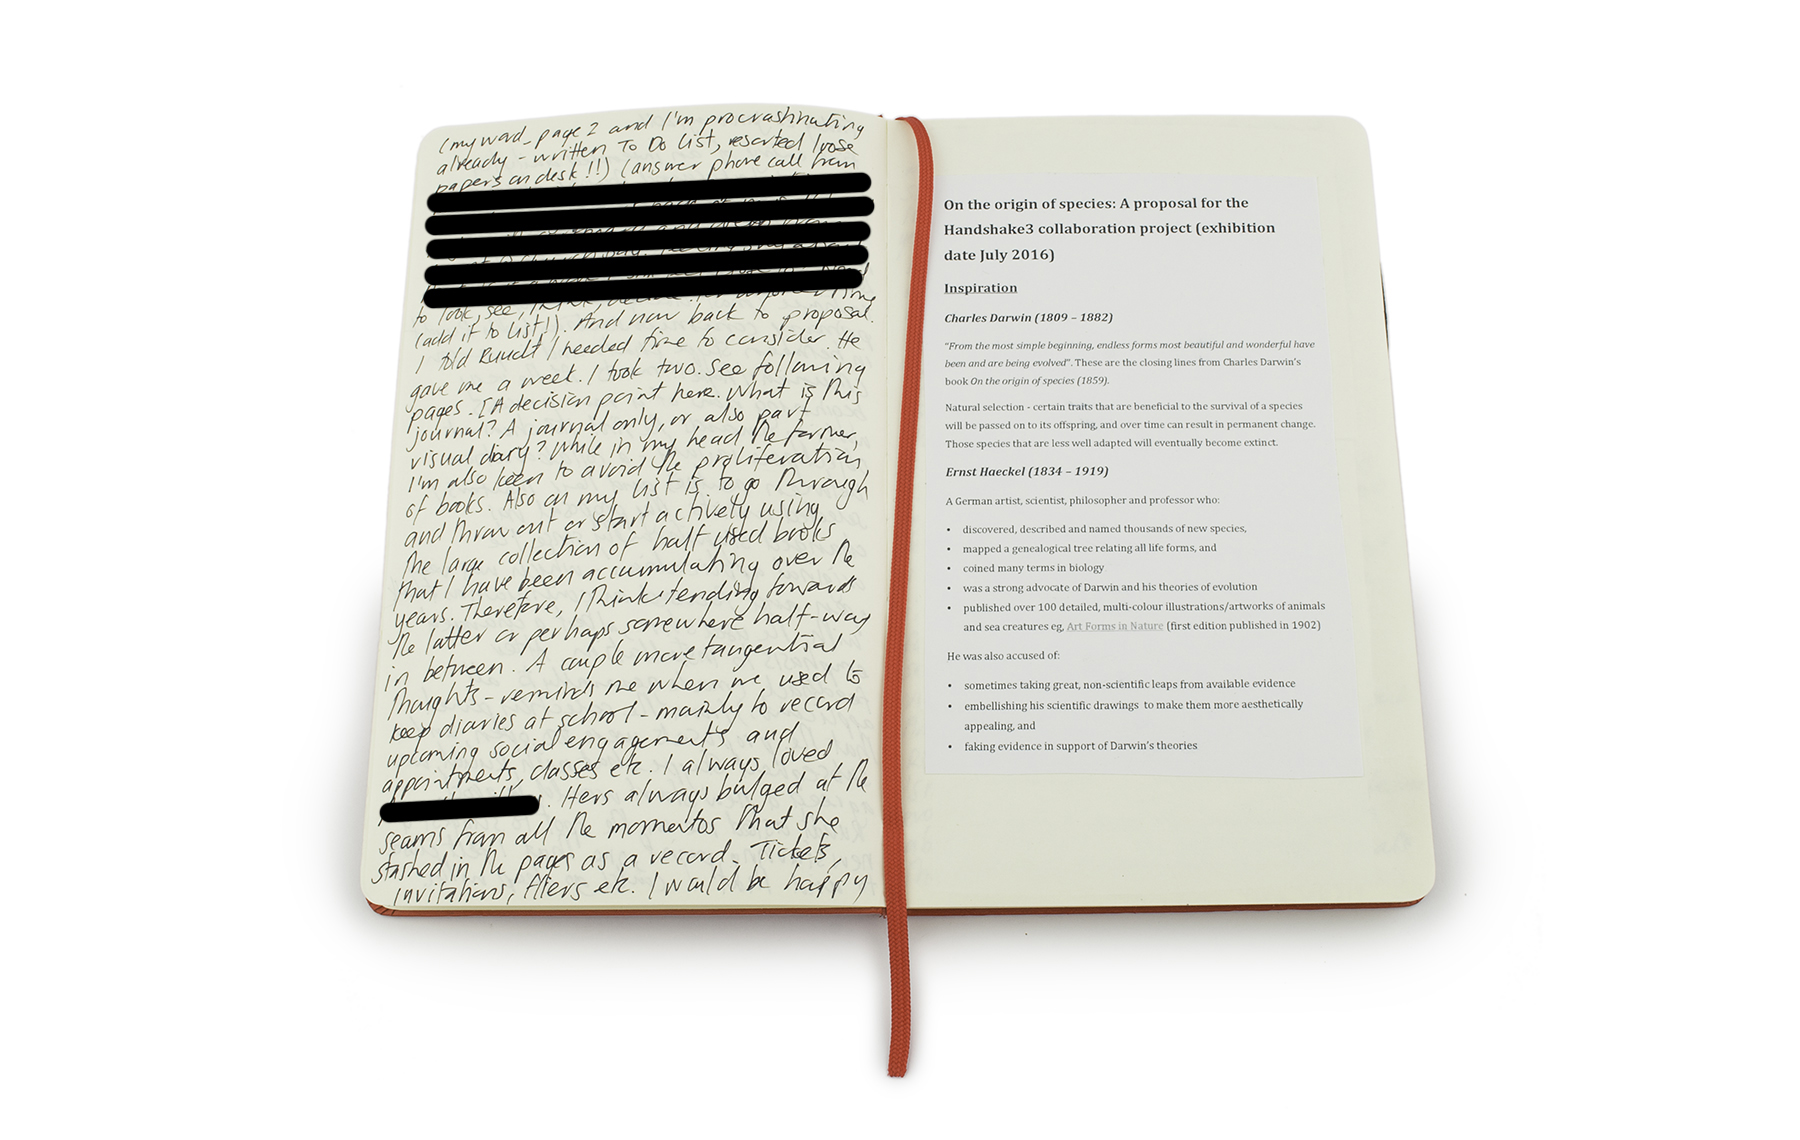 (my word, page 2 and I'm procrastinating
already - written To Do List, resorted loose
papers on desk!!) (answer phone call from
to look, see, think,
(add it to list!). And now back to proposal.
I told Ruudt I needed time to consider. He
gave me a week. I took two. See following
pages. [A decision point here. What is this
journal? A journal only, or also part
visual diary? While in my head the former,
I'm also keen to avoid the proliferation
of books. Also on my list is to go through
and throw out or start actively using
the large collection of half used books
that I have been accumulating over the
years. Therefore, I think tending towards
the latter or perhaps somewhere half-way
in between. A couple more tangential
thoughts - reminds me when we used to
keep diaries at school - mainly to record
upcoming social engagements and
appointments, classes etc. I always loved
. Hers always bulged at the
seams from all the momentos that she
stashed in the pages as a record. Tickets,
invitations, fliers etc. I would be happy
On the origin of species: A proposal for the
Handshake3 collaboration project (exhibition
date July 2016)
Inspiration
Charles Darwin (1809 – 1882)
"From the most simple beginning, endless forms most beautiful and wonderful have
been and are being evolved". These are the closing lines from Charles Darwin's
book On the origin of species (1859).
Natural selection - certain traits that are beneficial to the survival of a species
will be passed on to its offspring, and over time can result in permanent change.
Those species that are less well adapted will eventually become extinct.
Ernst Haeckel (1834 – 1919)
A German artist, scientist, philosopher and professor who:
• discovered, described and named thousands of new species,
• mapped a genealogical tree relating all life forms, and
• coined many terms in biology
• was a strong advocate of Darwin and his theories of evolution
• published over 100 detailed, multi-colour illustrations/artworks of animals
and sea creatures eg, Art Forms in Nature (first edition published in 1902)
He was also accused of:
• sometimes taking great, non-scientific leaps from available evidence
• embellishing his scientific drawings to make them more aesthetically
appealing, and
• faking evidence in support of Darwin's theories